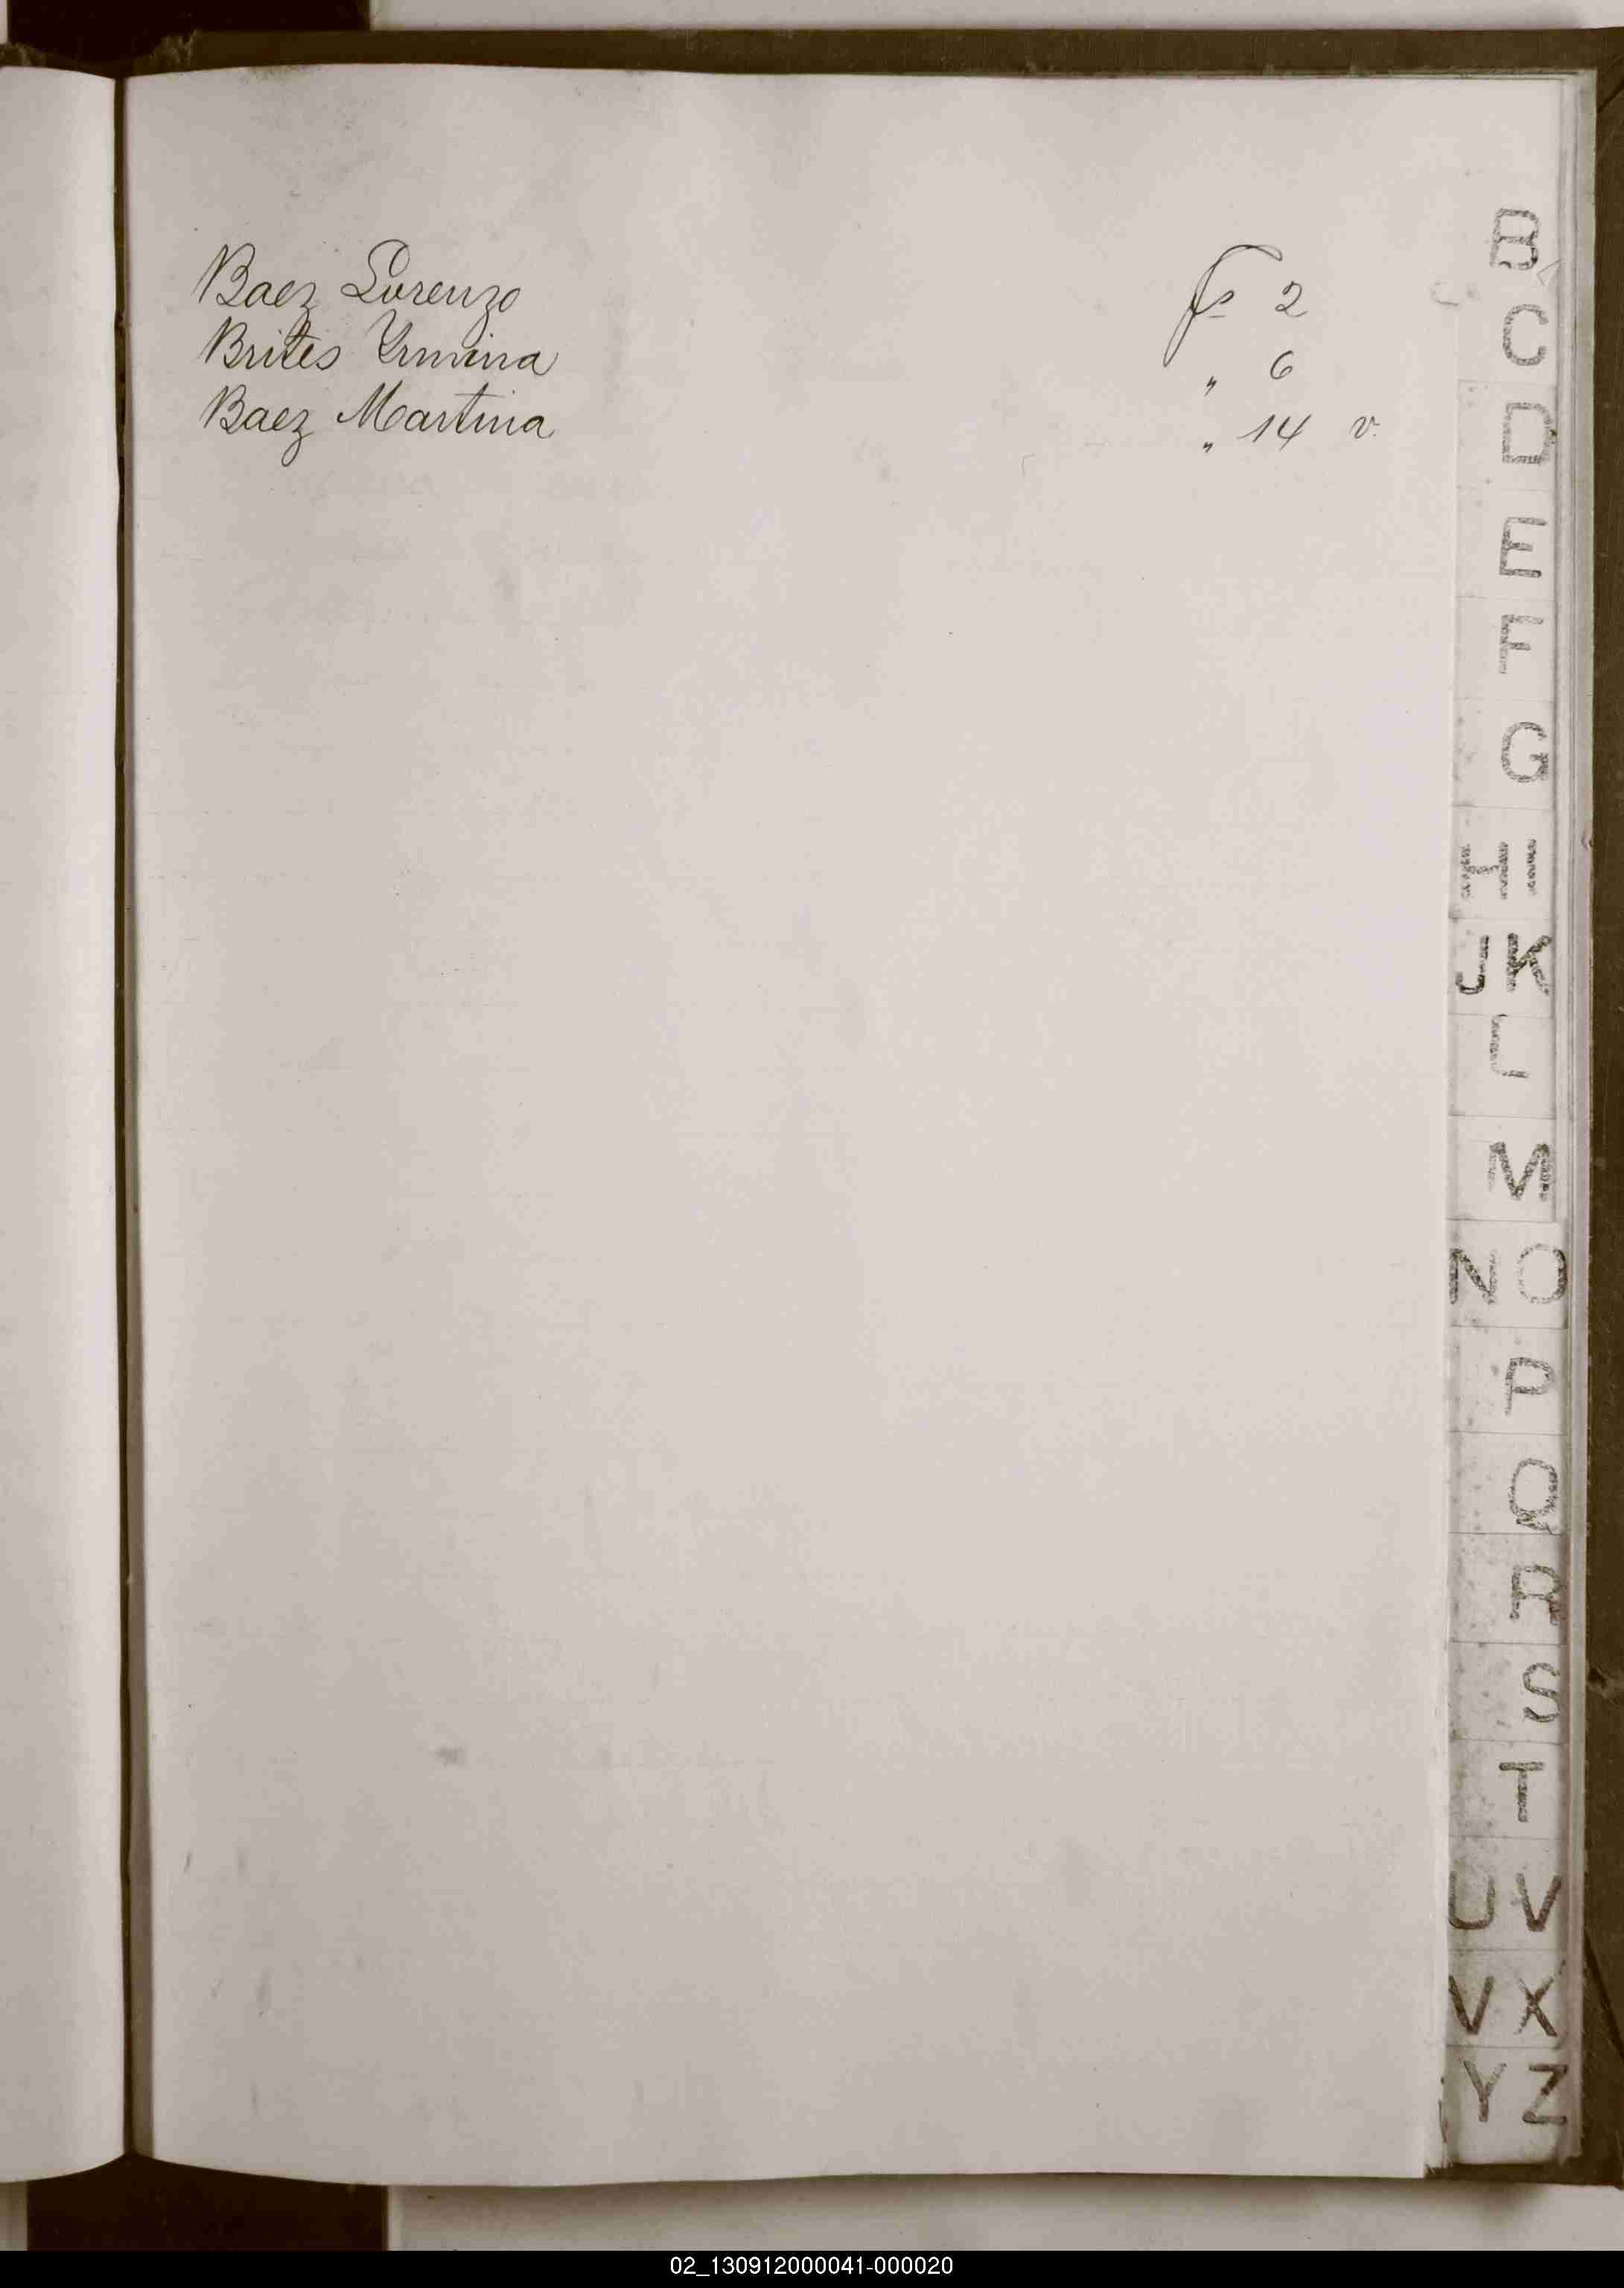 Baez Lorenzo fo 2
Brites Ermina " 6
Baez Martina " 14 v.
B
C
D
E
F
G
HI
JK
L
M
NO
P
Q
R
S
T
UV
VX
YZ
02_130912000041-000020